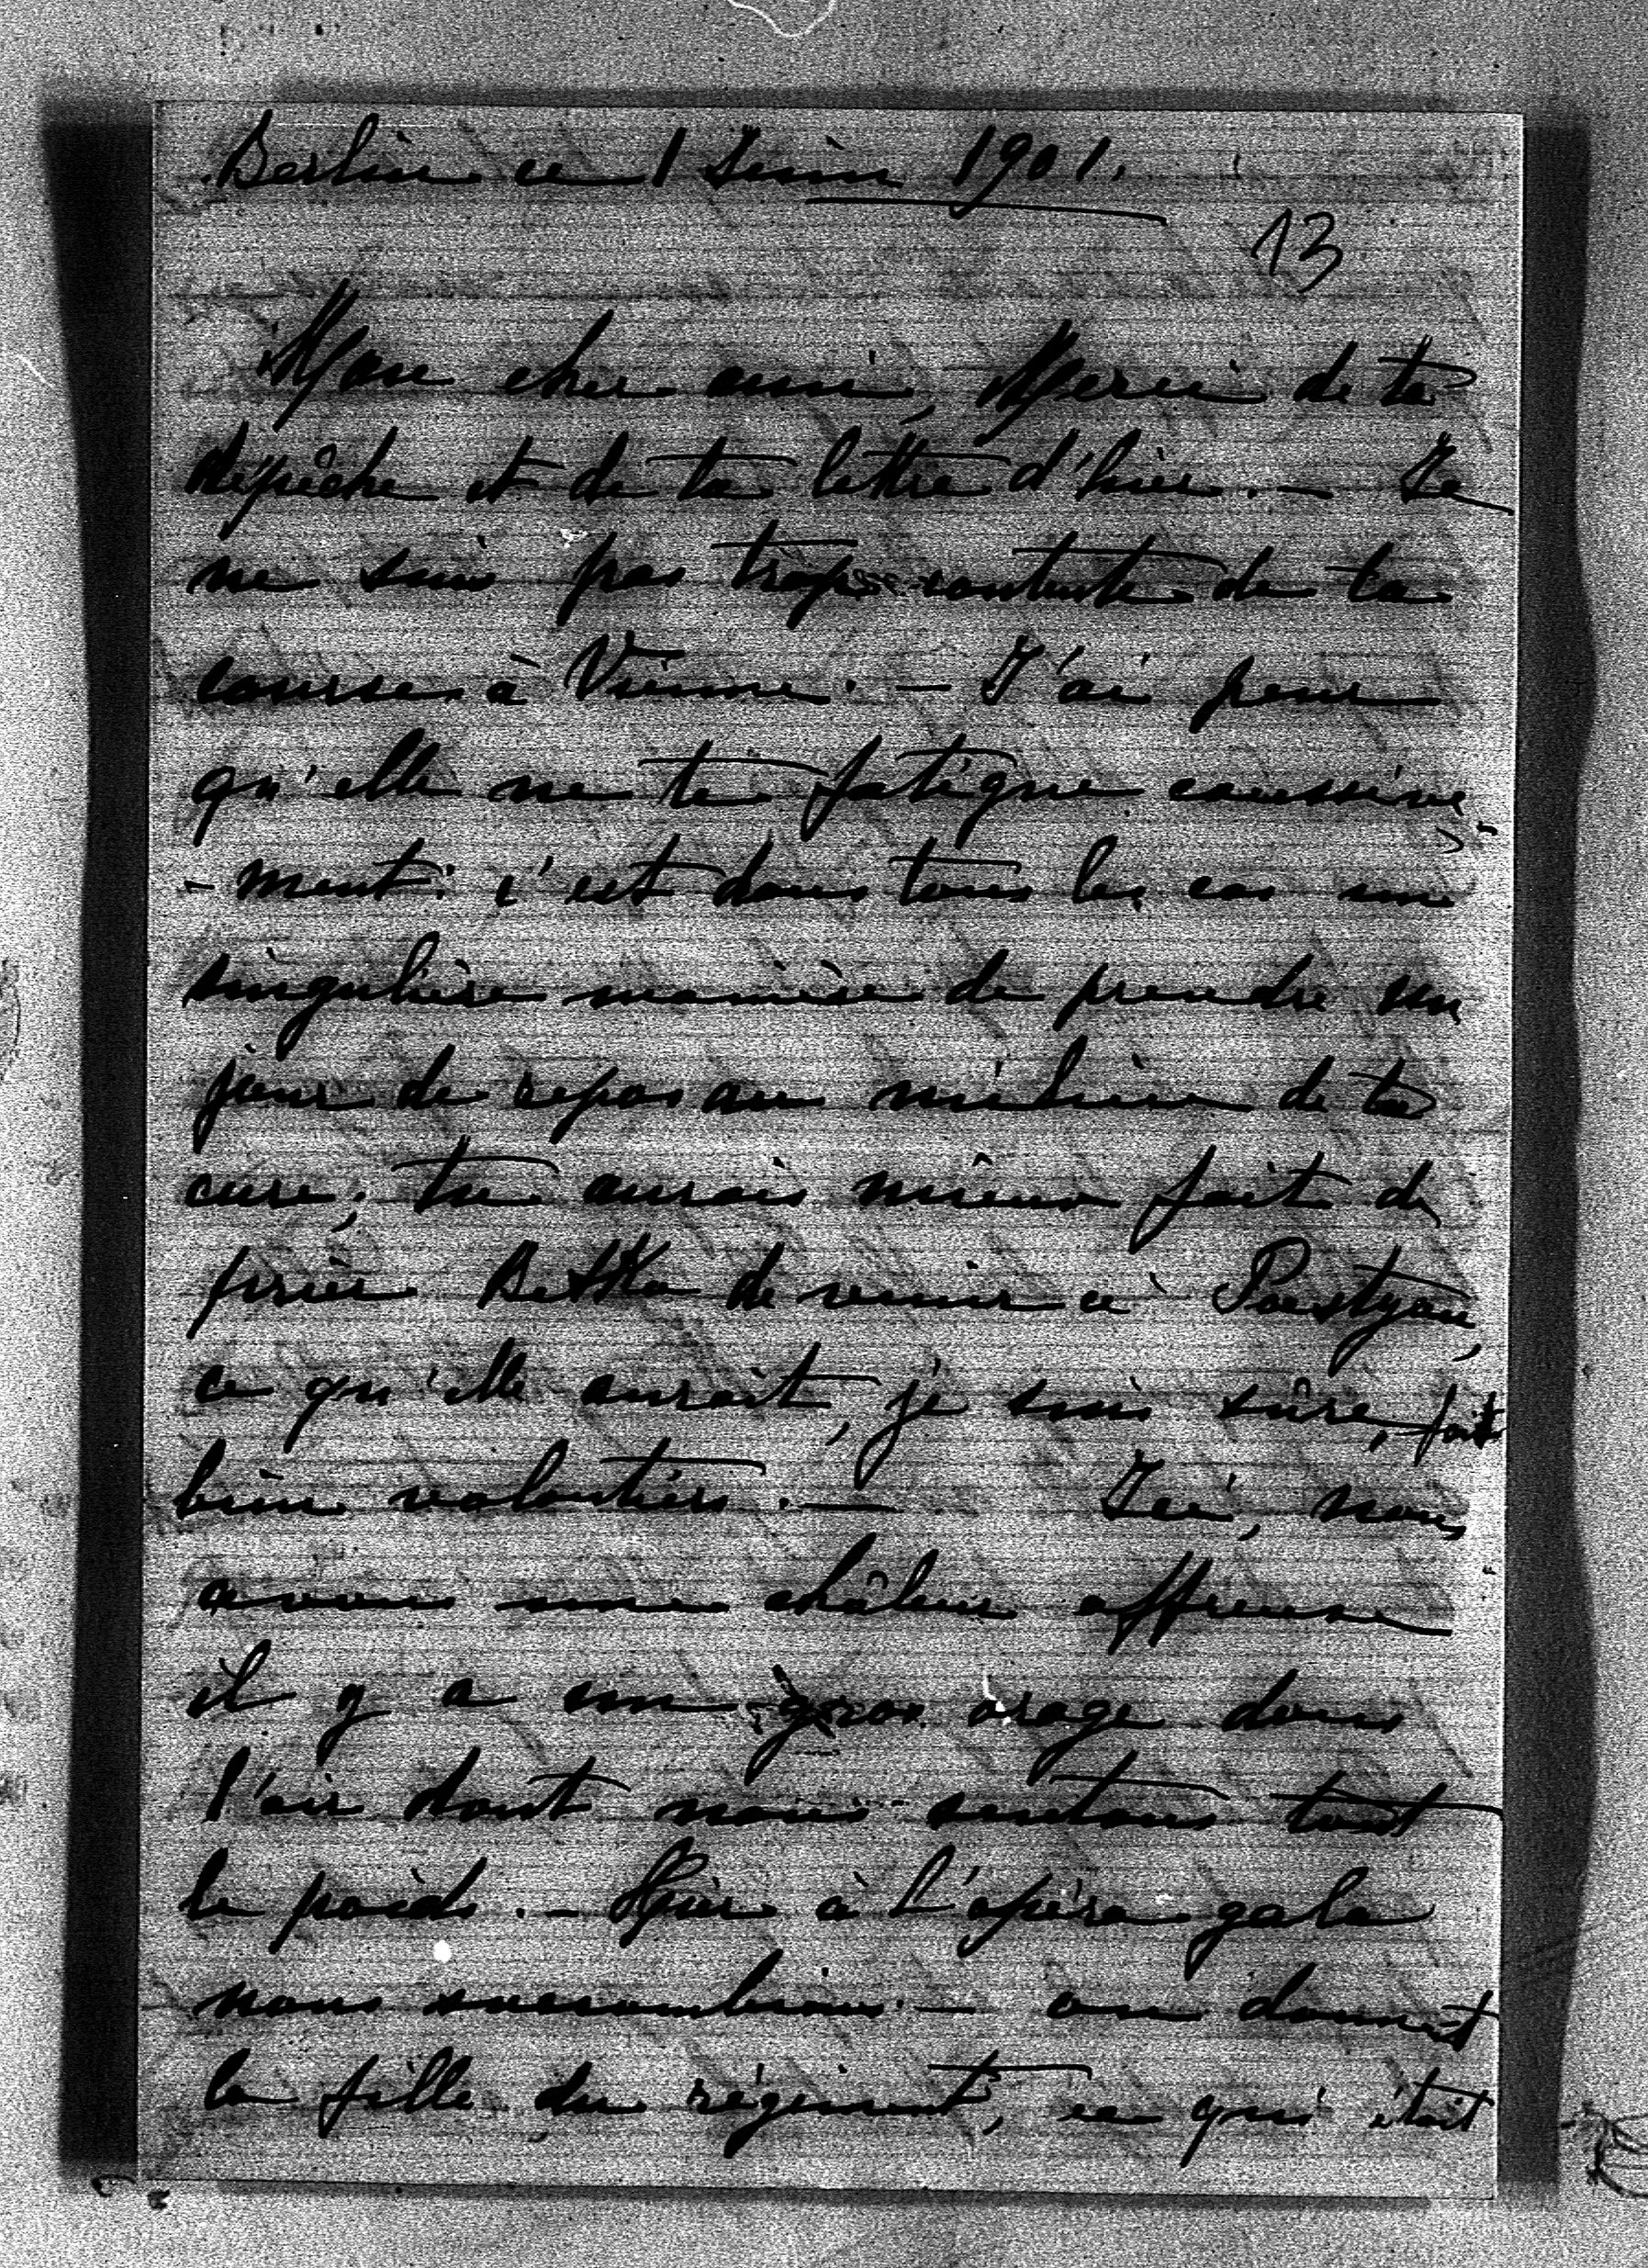 Berlin ce 1 Juin 1901.
13
Mon cher ami, Merci de ta
dépêche et de ta lettre d'hier. — Je
ne suis pas trop contente de ta
course à Vienne. — J'ai peur
qu'elle ne te fatigue
- ment: c'est dans tous les cas une
singulière manière de prendre un
jour de repos au milieu de ta
cure; tu aurais mieux fait de
prier Betka de venir à Poestyan,
ce qu'elle aurait, je suis sûre, fait
bien volontiers. — Ici, nous
avons une châleur affreuse
il y a un gros orage dans
l'air dont nous sentons tout
le poids. — Hier à l'opéra gala
nous succombions. — on donnait
la fille du régiment, ce qui était